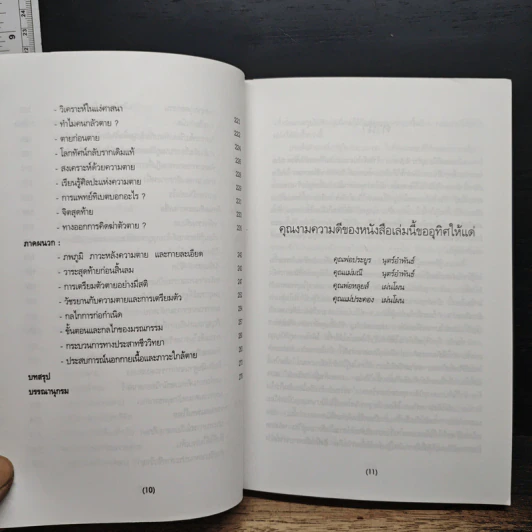 - วิเคราะห์ในแง่ศาสนา
- ทำไมคนกลัวตาย ?
- ตายก่อนตาย
- โลกทัศน์กลับรากเดิมแท้
- สงเคราะห์ด้วยความตาย
- เรียนรู้ศิลปะแห่งความตาย
- การแพทย์ทิเบตบอกอะไร ?
- จิตสุดท้าย
- ทางออกการคิดฆ่าตัวตาย ?
ภาคผนวก :
- ภพภูมิ ภาวะหลังความตาย และกายละเอียด
- วาระสุดท้ายก่อนสิ้นลม
- การเตรียมตัวตายอย่างมีสติ
- วัชรยานกับความตายและการเตรียมตัว
- กลไกการก่อกำเนิด
- ขั้นตอนและกลไกของมรณกรรม
- กระบวนการทางประสาทชีววิทยา
- ประสบการณ์นอกกายเนื้อและภาวะใกล้ตาย
บทสรุป
บรรณานุกรม
(10)
คุณงามความดีของหนังสือเล่มนี้ขออุทิศให้แด่
คุณพ่อประยูร นุตร์อำพันธ์
คุณแม่มณี นุตร์อำพันธ์
คุณพ่อหลุยส์ เผ่นโผน
คุณแม่ประคอง เผ่นโผน
(11)